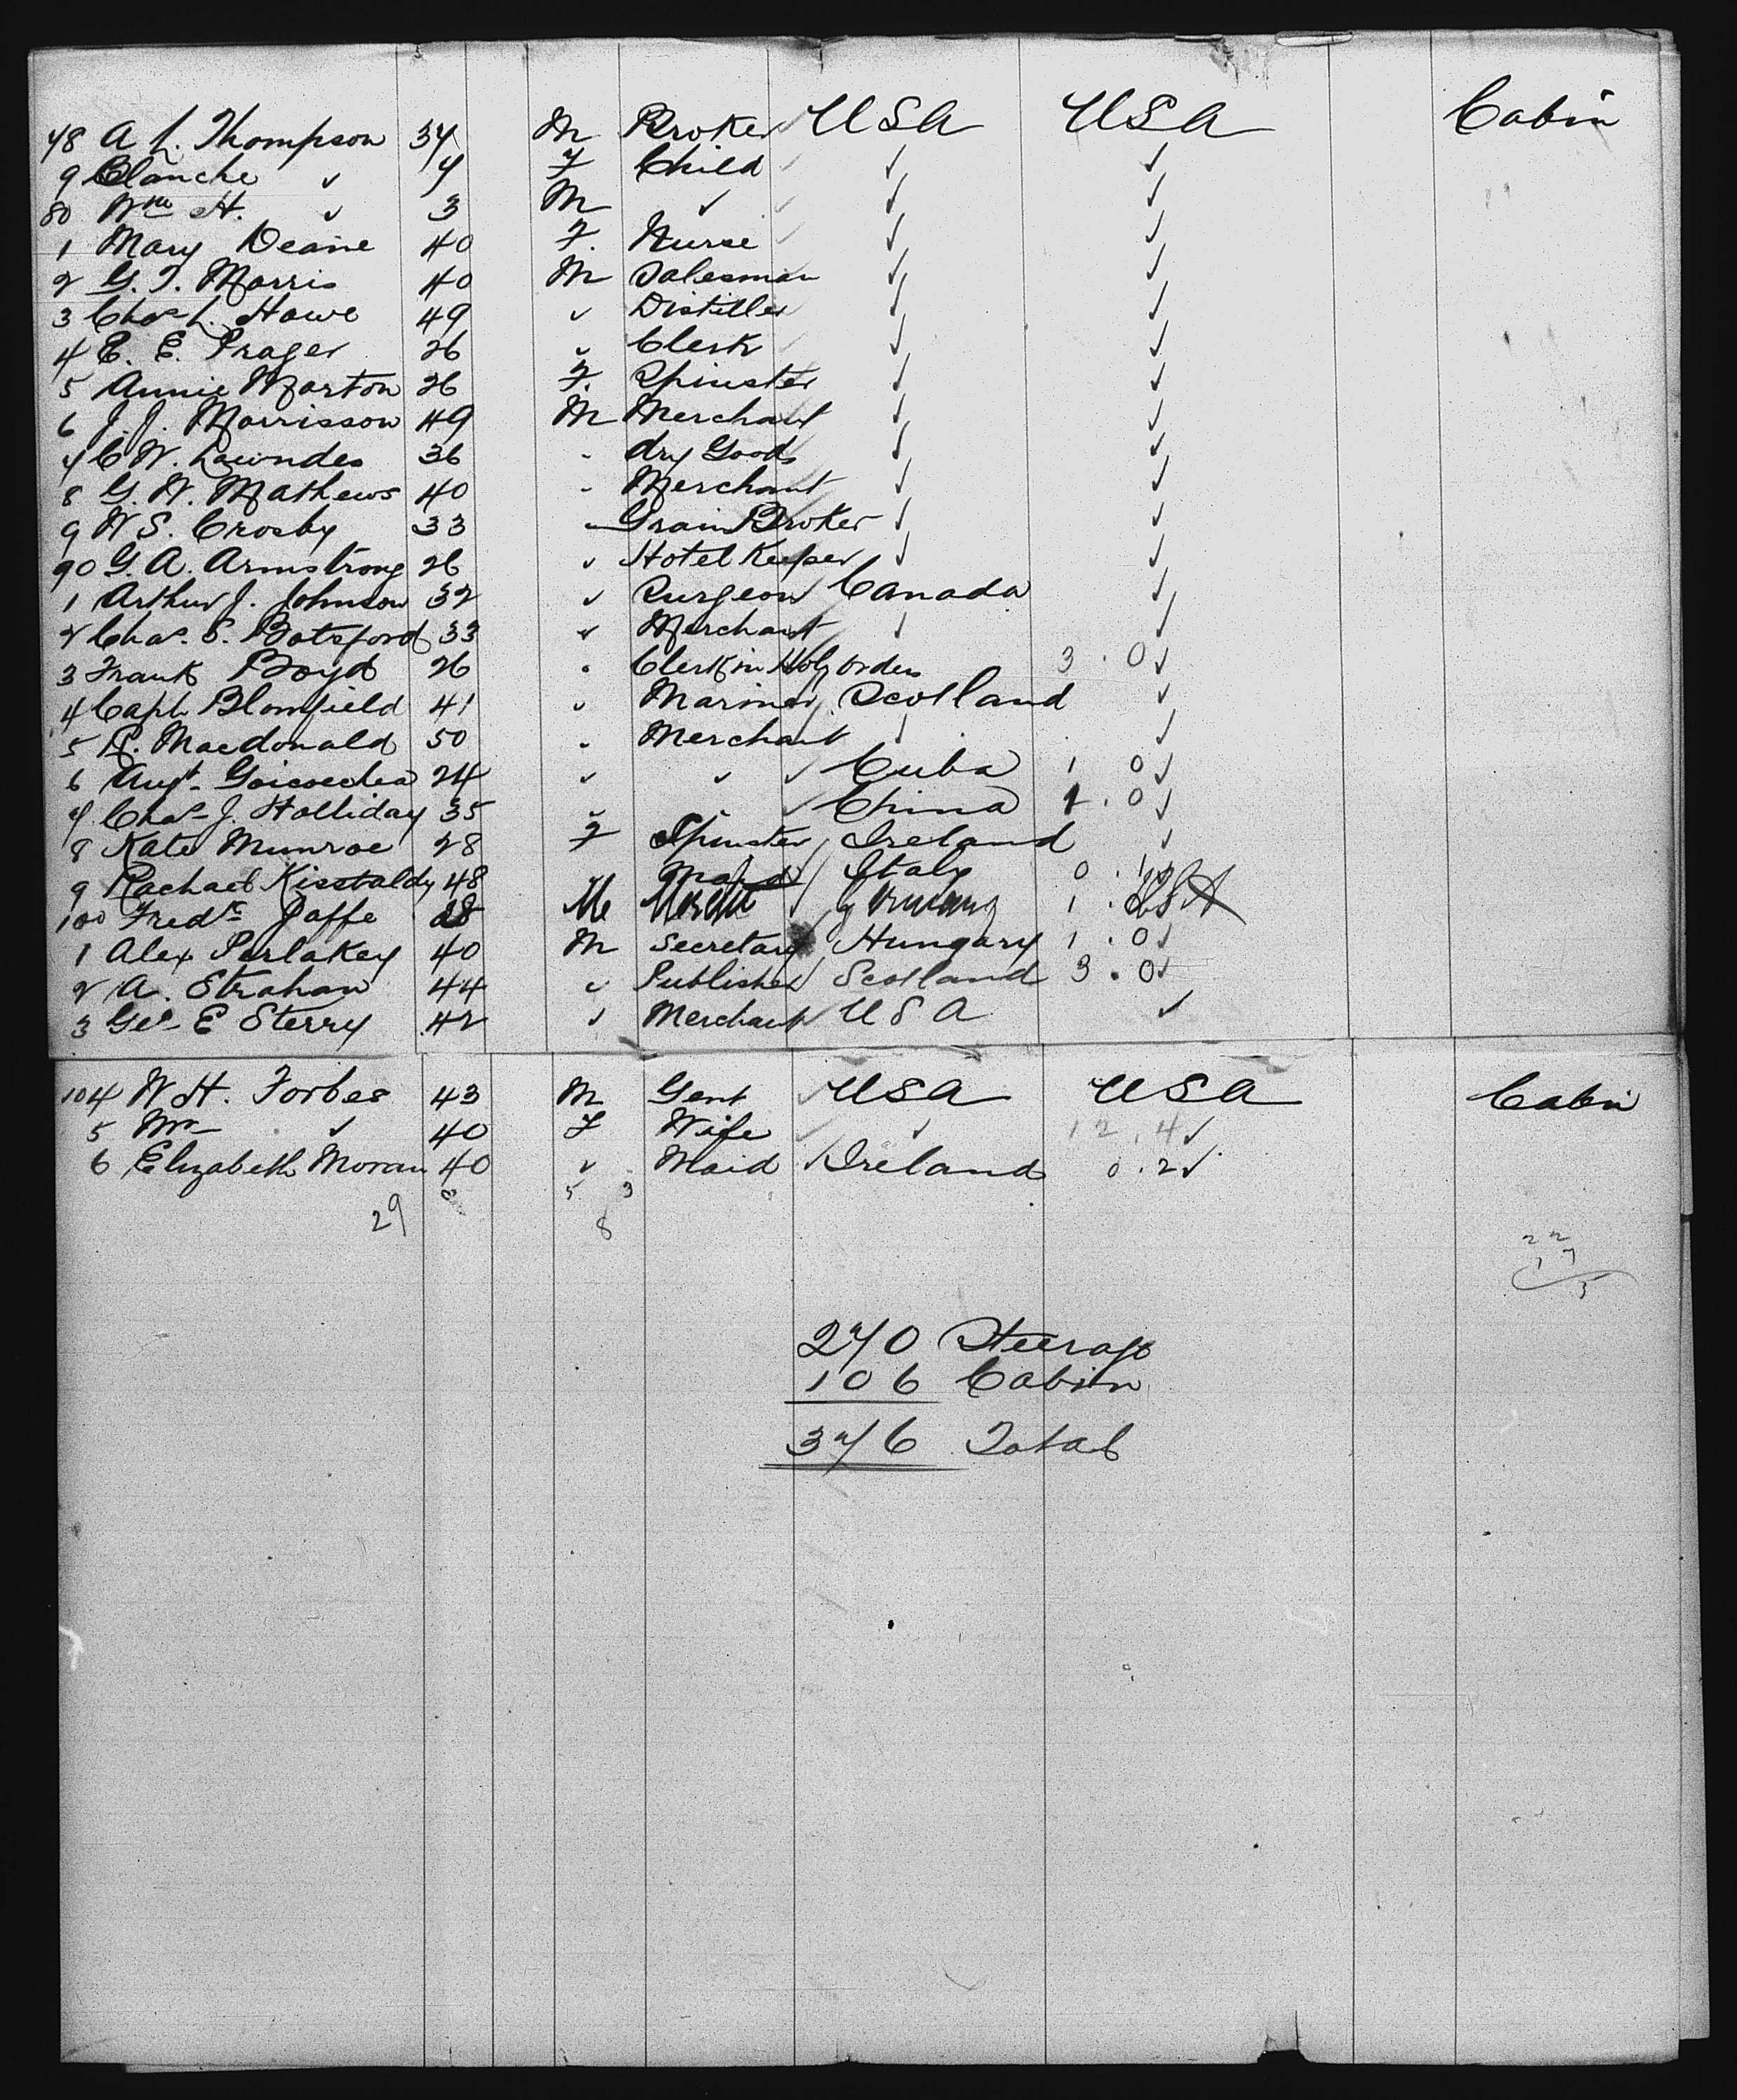 78 A L. Thompson 34 M Broker ✓ USA USA Cabin
9 Blanche ✓ 7 F Child ✓ ✓ ✓
80 Wm H. ✓ 3 M ✓ ✓ ✓ ✓
1 Mary Deane 40 F. Nurse ✓ ✓ ✓
2 G. T. Morris 40 M Salesman ✓ ✓
3 Chas L. Howe 49 ✓ Distiller ✓ ✓
4 E. E. Prager 26 ✓ Clerk ✓ ✓
5 Annie Morton 26 F. Spinster ✓ ✓
6 J. J. Morrisson 49 M Merchant ✓ ✓
7 C W. Lowndes 36 " dry Goods ✓ ✓
8 G. W. Mathews 40 " Merchant ✓ ✓
9 W S. Crosby 33 " Grain Broker ✓ ✓
90 G. A. Armstrong 26 ✓ Hotel Keeper ✓ ✓
1 Arthur J. Johnson 32 ✓ Surgeon Canada ✓
2 Chas. S. Botsford 33 ✓ Merchant ✓ ✓
3 Frank Boyd 26 " Clerk in Holy Orders 3 . 0 ✓
4 Capt. Blomfield 41 ✓ Mariner Scotland ✓
5 R. Macdonald 50 " Merchant ✓ ✓
6 Augt. Goicoechea 24 ✓ ✓ ✓ Cuba 1 0 ✓
7 Chas. J. Holliday 35 ✓ ✓ China 1 . 0 ✓
8 Kate Munroe 28 F Spinster Ireland ✓
9 Rachael 48 " Maid Italy 0 . 1
100 Fredk. Jaffe 28 M Mercht ✓ Germany 1 . USA
1 Alex Perlakey 40 M Secretary Hungary 1 . 0 ✓
2 A. Strahan 44 ✓ Publisher Scotland 3 . 0 ✓
3 Geo. E Sterry 42 ✓ Merchant USA ✓
104 W H. Forbes 43 M Gent ✓ USA USA Cabin
5 Mrs ✓ 40 F Wife ✓ ✓ 12 . 4 ✓
6 Elizabeth Moran 40 ✓ Maid ✓ Ireland 0 . 2 ✓
5 3
29 8
270 Steerage
106 Cabin
376 Total